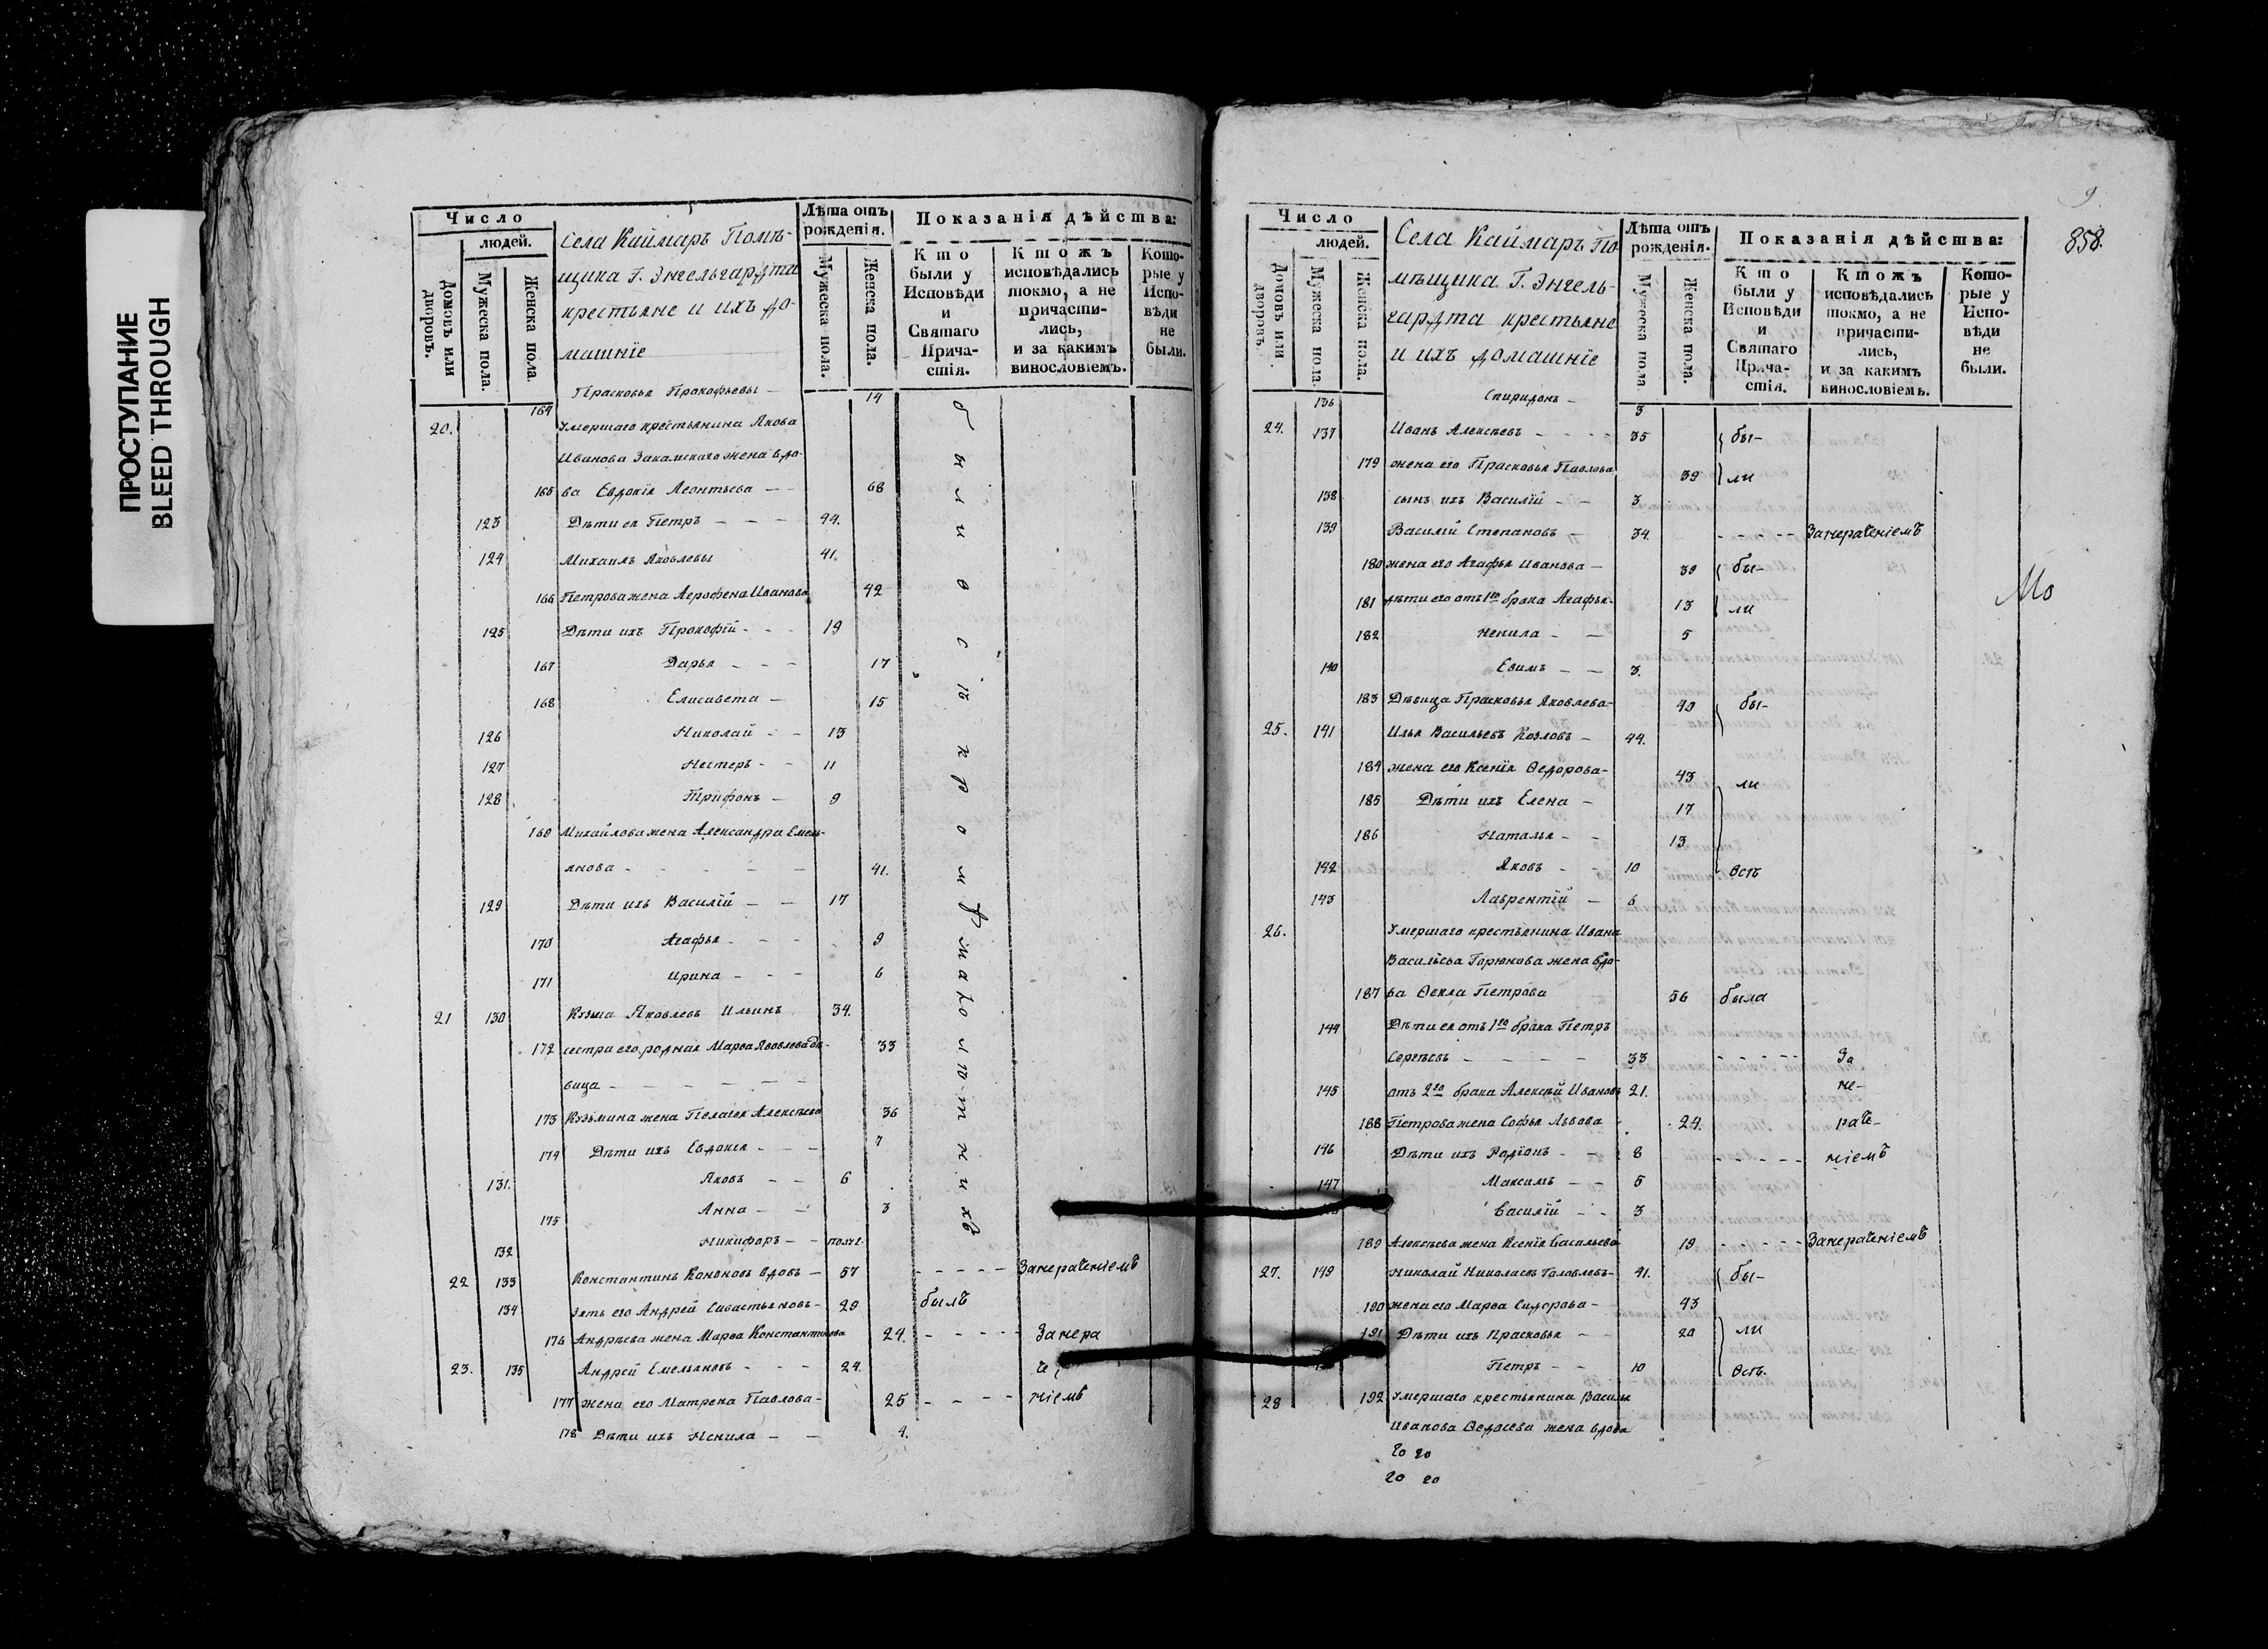 ПРОСТУПАНИЕ
BLEED THROUGH
Число
людей.
Домовъ или дворовъ.
Мужеска пола.
Женска пола.
Села Каймаръ Помѣ-
щика Г. Энгельгардта
крестьяне и ихъ до-
машніе
Лѣта отъ рожденія.
Мужеска пола.
Женска пола.
Показанія дѣйства:
Кто были у Исповѣди и Святаго Прича-стія.
Ктожъ исповѣдались токмо, а не причасти-лись, и за какимъ винословіемъ.
Кото-рые у Испо-вѣди не были.
164 Прасковья Прокофьевы - 14
20. Умершаго крестьянина Якова
Иванова Закамскаго жена вдо-
165 ва Евдокія Леонтьева - - 68
123 Дѣти ея Петръ - - - 44.
124 Михаилъ Яковлевы 41.
166 Петрова жена Агрофена Иванова 42
125 Дѣти ихъ Прокофій - - - 19
167 Дарья - - - 17
168 Елисавета - 15
126 Николай - - 13
127 Нестеръ - - 11
128 Трифонъ - 9
169 Михайлова жена Александра Емель-
янова - - - - - 41.
129 Дѣти ихъ Василій - - 17
170 Агафья - - - 9
171 Ирина - - - 6
21 130 Кузма Яковлевъ Ильинъ 34.
172 сестра его родная Марѳа Яковлева дѣ-
вица - - - - - - 33
173 Кузьмина жена Пелагея Алексѣева 36
174 Дѣти ихъ Евдокея - - - 7
131. Яковъ - - 6
175 Анна - - 3
132 Никифоръ - - полг.
были всѣ кромѣ малолѣтнихъ
22 133 Константинъ Кононовъ вдовъ - 57 - - - - - Занераченіемъ
134 зять его Андрей Савастьяновъ - 29 былъ
176 Андрѣева жена Марѳа Константинова 24. - - - - - Занера
23. 135 Андрей Емельяновъ - - - 24. че
177 жена его Матрена Павлова - 25 - - - - ніемъ
178 Дѣти ихъ Ненила - - 4.
9
858.
Число
людей.
Домовъ или дворовъ.
Мужеска пола.
Женска пола.
Села Каймаръ По-
мѣщика Г. Энгель-
гардта крестьяне
и ихъ домашніе
Лѣта отъ рожденія.
Мужеска пола.
Женска пола.
Показанія дѣйства:
Кто были у Исповѣди и Святаго Прича-стія.
Ктожъ исповѣдались токмо, а не причасти-лись, и за какимъ винословіемъ.
Кото-рые у Испо-вѣди не были.
136 Спиридонъ - 3
24. 137 Иванъ Алексѣевъ - - - - 35 бы-
179 жена его Прасковья Павлова 39 ли
138 сынъ ихъ Василій - - 3
139 Василій Степановъ - 34. - - - - - Занераченіемъ
180 жена его Агафья Иванова - 39 бы-
Мо
181 дѣти его отъ 1го брака Агафья - 13 ли
182 Ненила - - 5
140 Евимъ - - 3.
183 Дѣвица Прасковья Яковлева - 40 бы-
25. 141 Илья Васильевъ Козловъ - 44.
184 жена его Ксенія Ѳедорова - 43 ли
185 Дѣти ихъ Елена - 17
186 Наталья - - 13
142 Яковъ - - 10 Всѣ
143 Лаврентій - 6
26. Умершаго крестьянина Ивана
Васильева Горюнова жена вдо-
187 ва Ѳекла Петрова 56 была
144 Дѣти ея отъ 1го брака Петръ
Сергѣевъ - - - - - 33 - - - - - За
145 отъ 2го брака Алексѣй Ивановъ 21. не-
188 Петрова жена Софья Львова 24. раче-
146 Дѣти ихъ Родіонъ - - 8 - - - - - ніемъ
147 Максимъ - - 5
Василій - - 3
189 Алексѣева жена Ксенія Васильева 19 - - - - - Занераченіемъ
27. 149 Николай Николаевъ Головлевъ - 41. бы-
190 жена его Марѳа Сидорова - 43
191 Дѣти ихъ Прасковья - - 20 ли
Петръ - - 10 Всѣ.
28 192 Умершаго крестьянина Василья
Иванова Ѳедосеева жена вдова
20 20
20 20